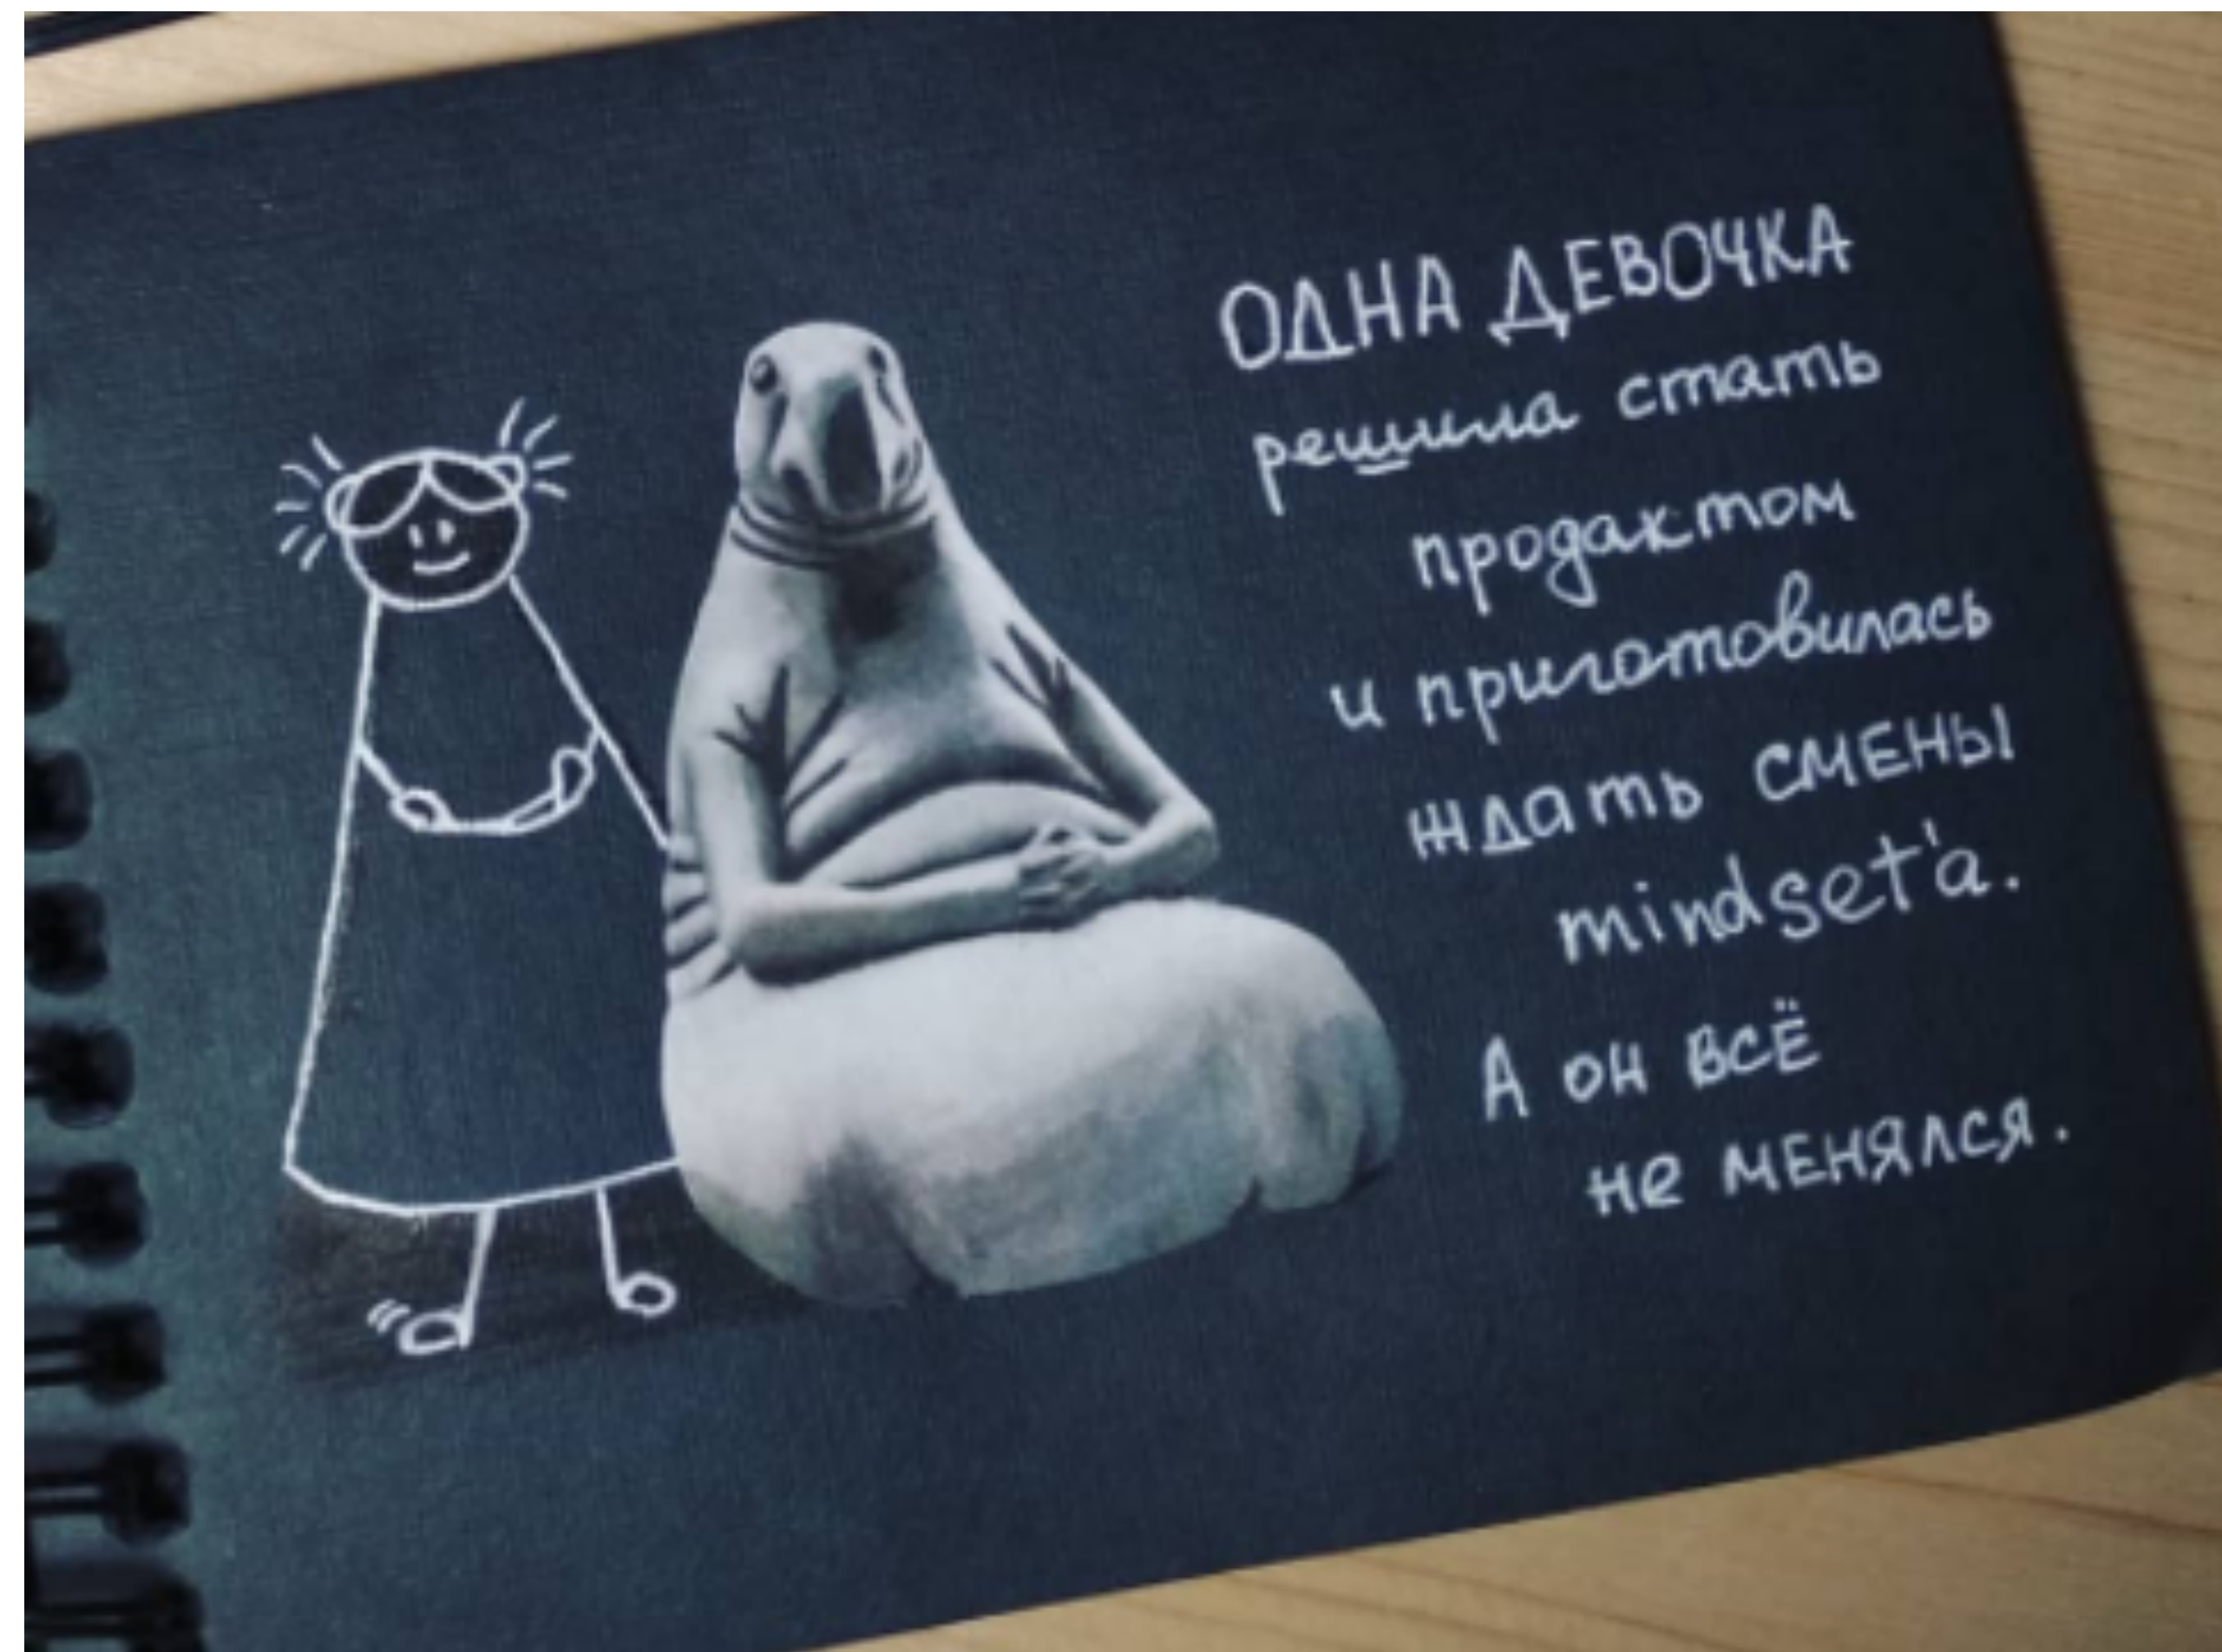 ОДНА ДЕВОЧКА
решила стать
продактом
и приготовилась
ждать СМЕНЫ
mindset'a.
А он всё
не менялся.